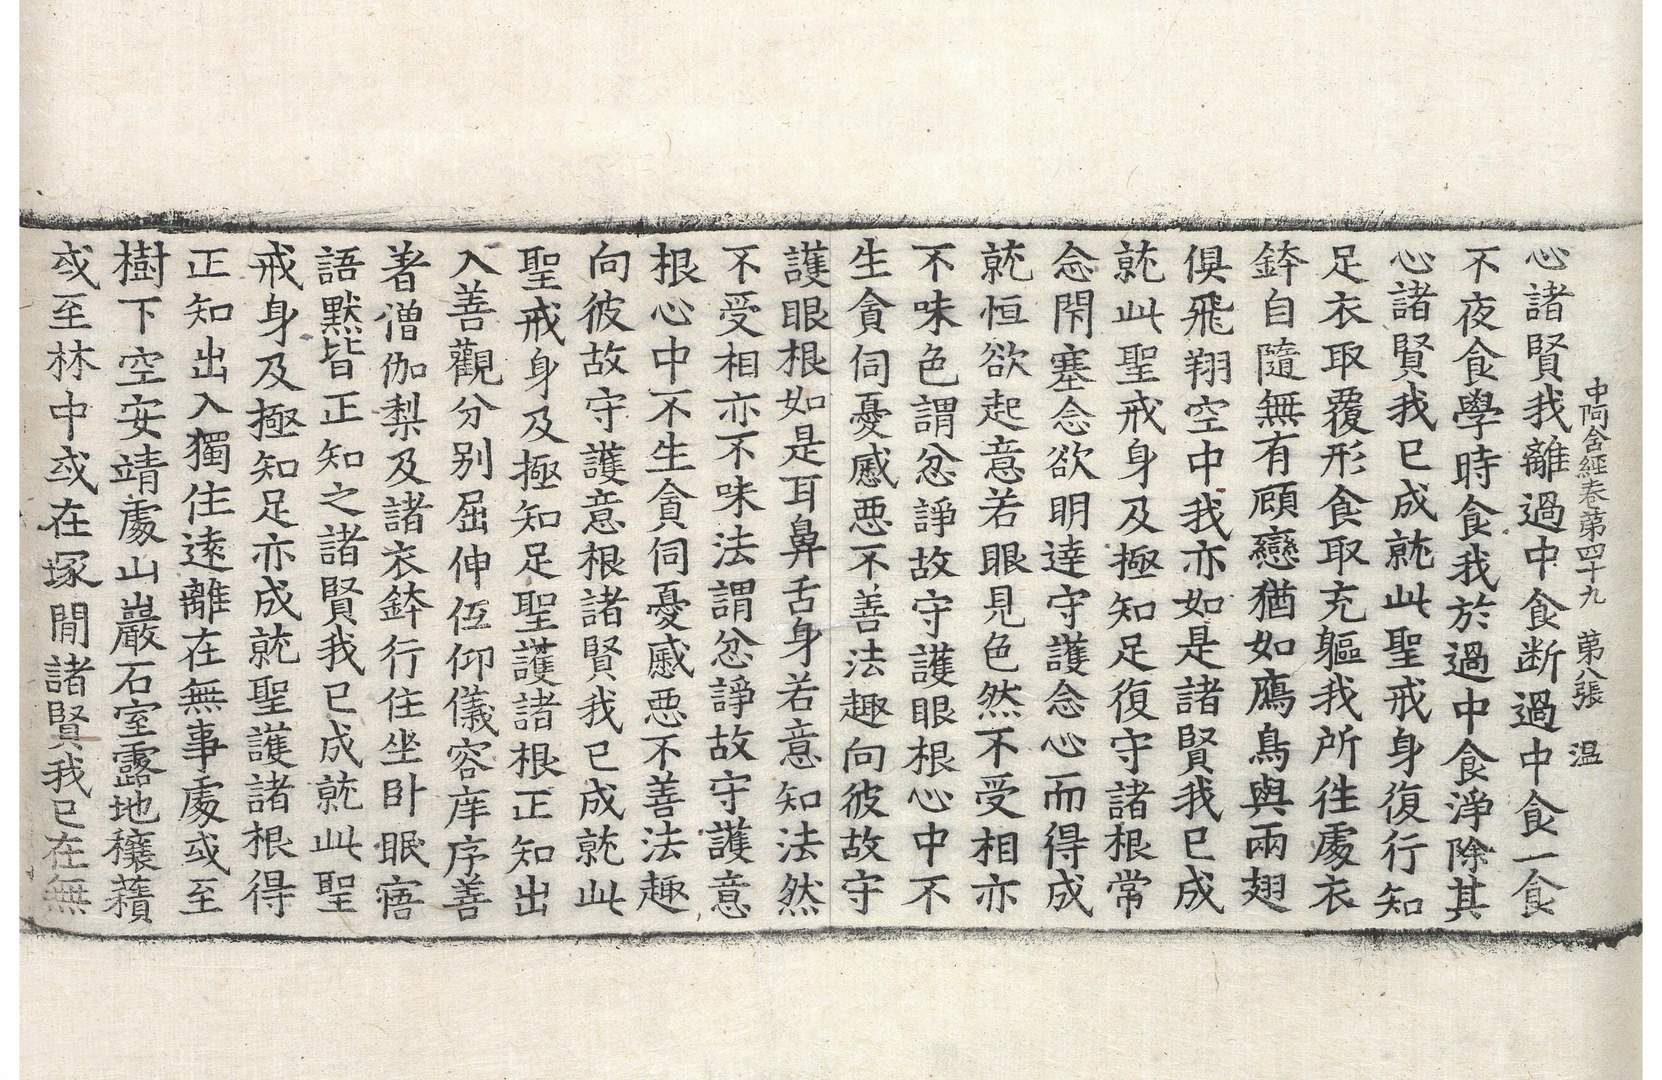 中阿含經卷第四十九　第八張　温
心諸賢我離過中食断過中食一食
不夜食學時食我於過中食淨除其
心諸賢我已成就此聖戒身復行知
足衣取覆形食取充軀我所往處衣
鉢自隨無有顧戀猶如鴈鳥與兩翅
俱飛翔空中我亦如是諸賢我已成
就此聖戒身及極知足復守諸根常
念閇塞念欲明達守護念心而得成
就恒欲起意若眼見色然不受相亦
不味色謂忿諍故守護眼根心中不
生貪伺憂慼悪不善法趣向彼故守
護眼根如是耳鼻舌身若意知法然
不受相亦不味法謂忿諍故守護意
根心中不生貪伺憂慼悪不善法趣
向彼故守護意根諸賢我已成就此
聖戒身及極知足聖護諸根正知出
入善觀分别屈伸仾仰儀容庠序善
著僧伽梨及諸衣鉢行住坐卧眠寤
語默皆正知之諸賢我已成就此聖
戒身及極知足亦成就聖護諸根得
正知出入獨住遠離在無事處或至
樹下空安靖處山巖石室露地穰䕆
或至林中或在塚閒諸賢我已在無